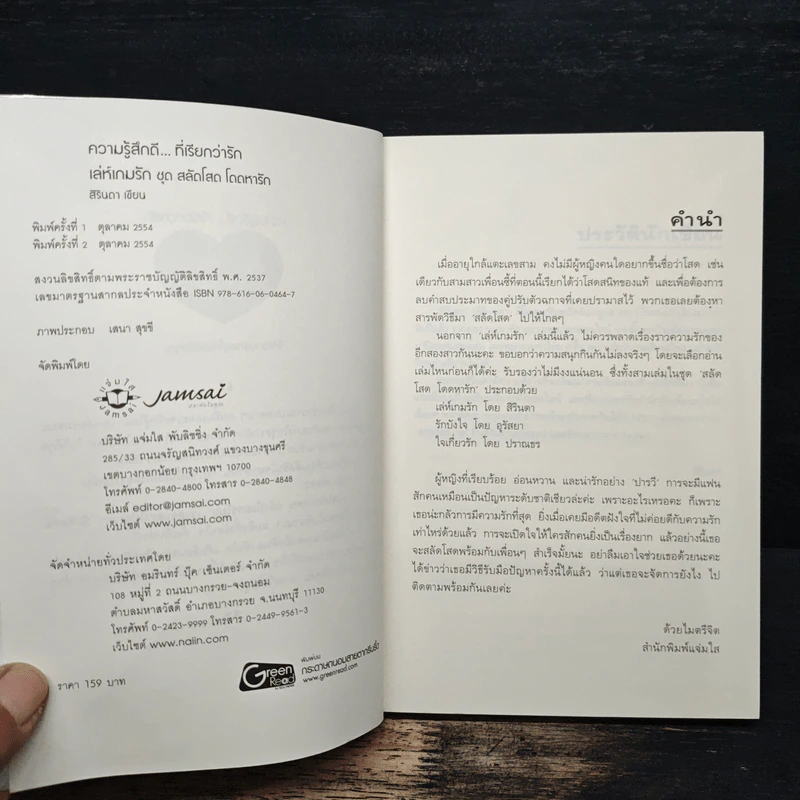 ความรู้สึกดี... ที่เรียกว่ารัก
เล่ห์เกมรัก ชุด สลัดโสด โดดหารัก
สิรินดา เขียน
พิมพ์ครั้งที่ 1 ตุลาคม 2554
พิมพ์ครั้งที่ 2 ตุลาคม 2554
สงวนลิขสิทธิ์ตามพระราชบัญญัติลิขสิทธิ์ พ.ศ. 2537
เลขมาตรฐานสากลประจำหนังสือ ISBN 978-616-06-0464-7
ภาพประกอบ เสนา สุขชี
จัดพิมพ์โดย
แจ่มใส
Jamsai
jamsai
บริษัท แจ่มใส พับลิชชิ่ง จำกัด
285/33 ถนนจรัญสนิทวงศ์ แขวงบางขุนศรี
เขตบางกอกน้อย กรุงเทพฯ 10700
โทรศัพท์ 0-2840-4800 โทรสาร 0-2840-4848
อีเมล์ editor@jamsai.com
เว็บไซต์ www.jamsai.com
จัดจำหน่ายทั่วประเทศโดย
บริษัท อมรินทร์ บุ๊ค เซ็นเตอร์ จำกัด
108 หมู่ที่ 2 ถนนบางกรวย-จงถนอม
ตำบลมหาสวัสดิ์ อำเภอบางกรวย จ.นนทบุรี 11130
โทรศัพท์ 0-2423-9999 โทรสาร 0-2449-9561-3
เว็บไซต์ www.naiin.com
ราคา 159 บาท
Green Read
พิมพ์บน
กระดาษถนอมสายตากรีนรี้ด
www.greenread.com
คำนำ
เมื่ออายุใกล้แตะเลขสาม คงไม่มีผู้หญิงคนใดอยากขึ้นชื่อว่าโสด เช่น
เดียวกับสามสาวเพื่อนซี้ที่ตอนนี้เรียกได้ว่าโสดสนิทของแท้ และเพื่อต้องการ
ลบคำสบประมาทของคู่ปรับตัวฉกาจที่เคยปรามาสไว้ พวกเธอเลยต้องหา
สารพัดวิธีมา 'สลัดโสด' ไปให้ไกลๆ
นอกจาก 'เล่ห์เกมรัก' เล่มนี้แล้ว ไม่ควรพลาดเรื่องราวความรักของ
อีกสองสาวกันนะคะ ขอบอกว่าความสนุกกินกันไม่ลงจริงๆ โดยจะเลือกอ่าน
เล่มไหนก่อนก็ได้ค่ะ รับรองว่าไม่มีงงแน่นอน ซึ่งทั้งสามเล่มในชุด 'สลัด
โสด โดดหารัก' ประกอบด้วย
เล่ห์เกมรัก โดย สิรินดา
รักบังใจ โดย อุรัสยา
ใจเกี่ยวรัก โดย ปราณธร
ผู้หญิงที่เรียบร้อย อ่อนหวาน และน่ารักอย่าง 'ปารวี' การจะมีแฟน
สักคนเหมือนเป็นปัญหาระดับชาติเชียวล่ะค่ะ เพราะอะไรเหรอคะ ก็เพราะ
เธอน่ะกลัวการมีความรักที่สุด ยิ่งเมื่อเคยมีอดีตฝังใจที่ไม่ค่อยดีกับความรัก
เท่าไหร่ด้วยแล้ว การจะเปิดใจให้ใครสักคนยิ่งเป็นเรื่องยาก แล้วอย่างนี้เธอ
จะสลัดโสดพร้อมกับเพื่อนๆ สำเร็จมั้ยนะ อย่าลืมเอาใจช่วยเธอด้วยนะคะ
ได้ข่าวว่าเธอมีวิธีรับมือปัญหาครั้งนี้ได้แล้ว ว่าแต่เธอจะจัดการยังไง ไป
ติดตามพร้อมกันเลยค่ะ
ด้วยไมตรีจิต
สำนักพิมพ์แจ่มใส